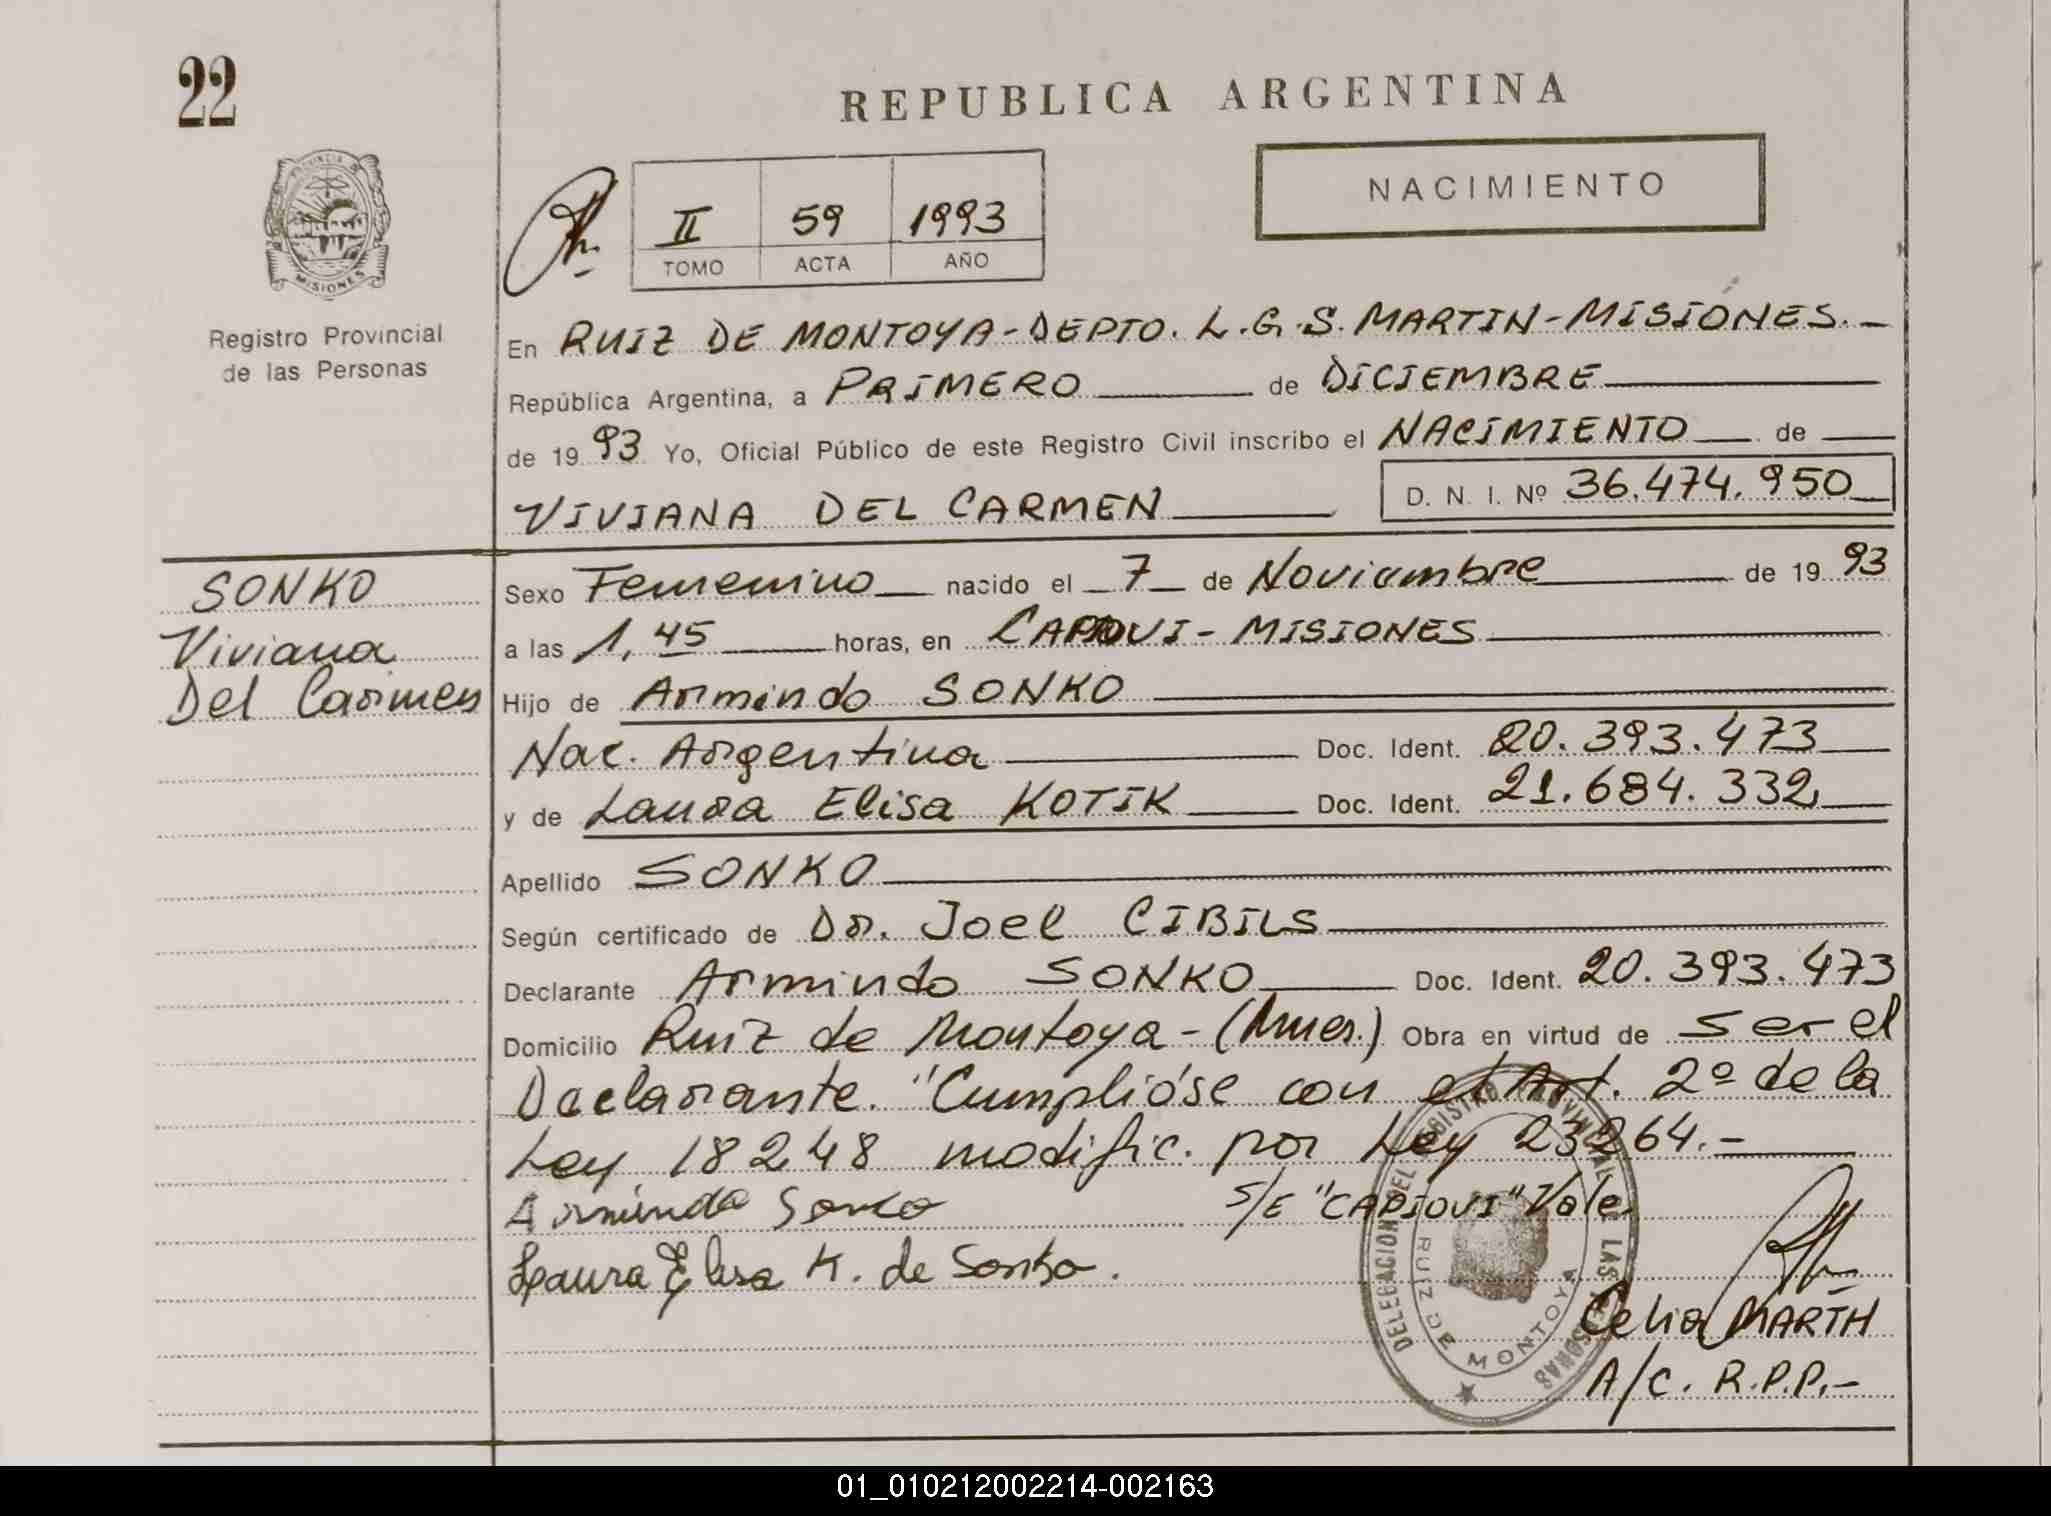 22
REPUBLICA ARGENTINA
NACIMIENTO
PROVINCIA DE
MISIONES
II 59 1993
TOMO ACTA AÑO
Registro Provincial
de las Personas
En RUIZ DE MONTOYA-DEPTO. L.G.S. MARTIN-MISIONES.-
República Argentina, a PRIMERO de DICIEMBRE
de 1993 Yo, Oficial Público de este Registro Civil inscribo el NACIMIENTO de
VIVIANA DEL CARMEN D. N. I. Nº 36.474.950
SONKO
Viviana
Del Carmen
Sexo Femenino nacido el 7 de Noviembre de 1993
a las 1,45 horas, en CAPIOVI - MISIONES
Hijo de Armindo SONKO
Nac. Argentina Doc. Ident. 20.393.473
y de Laura Elisa KOTIK Doc. Ident. 21.684.332
Apellido SONKO
Según certificado de Dr. Joel CIBILS
Declarante Armindo SONKO Doc. Ident. 20.393.473
Domicilio Ruiz de Montoya - (Mnes.) Obra en virtud de ser el
Declarante. "Cumplióse con el Art. 2º de la
Ley 18248 modific. por Ley 23264.-
Armindo Sonko S/E "CAPIOVI" Vale
Laura Elisa K. de Sonko.
DELEGACION DEL REGISTRO PROVINCIAL DE LAS PERSONAS
RUIZ DE MONTOYA
Celia MARTH
A/C. R.P.P.-
01_010212002214-002163